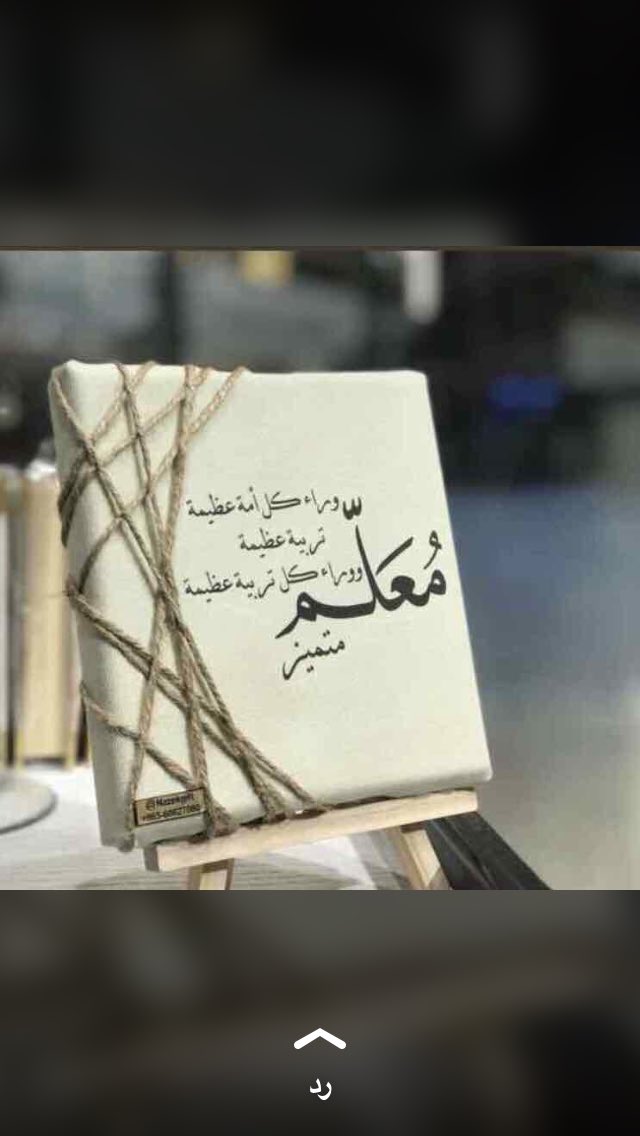 وراء كل أمة عظيمة
تربية عظيمة
ووراء كل تربية عظيمة
مُعَلّم
متميز
رد